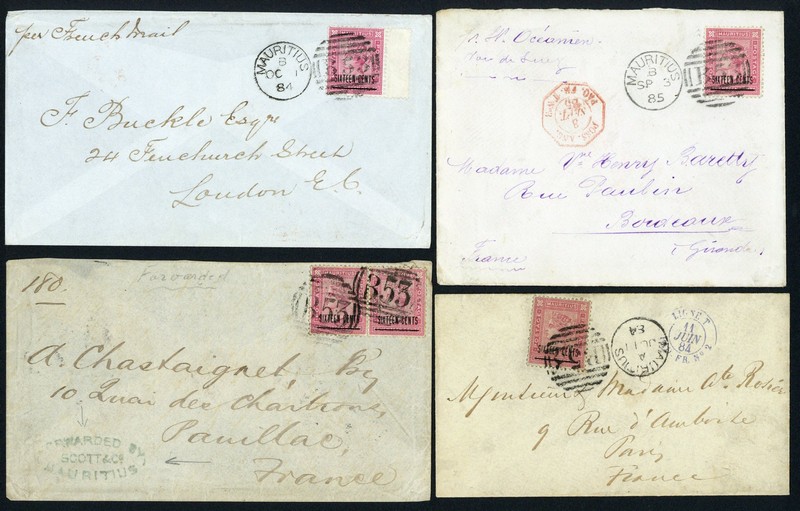 per French Mail
MAURITIUS
B
OC 1
84
SIXTEEN CENTS
F. Buckle Esqre
24 Fenchurch Street
London E.C.
p. St. Océanien
MAURITIUS
B
SP 3
85
MAURITIUS
SIXTEEN CENTS
Madame Ve Henry
Rue
Bordeaux
France
Gironde
180.
Forwarded
B53
B53
SIXTEEN CENTS
SIXTEEN CENTS
A. Chastaignet, Esq
10 Quai des Chartrons
Pauillac,
France
FORWARDED BY
SCOTT & CO
MAURITIUS
SIXTEEN CENTS
MAURITIUS
A
84
LIGNE T
11
JUIN
84
FR. No 2
Monsieur Madame
9 Rue d'Amboise
Paris
France